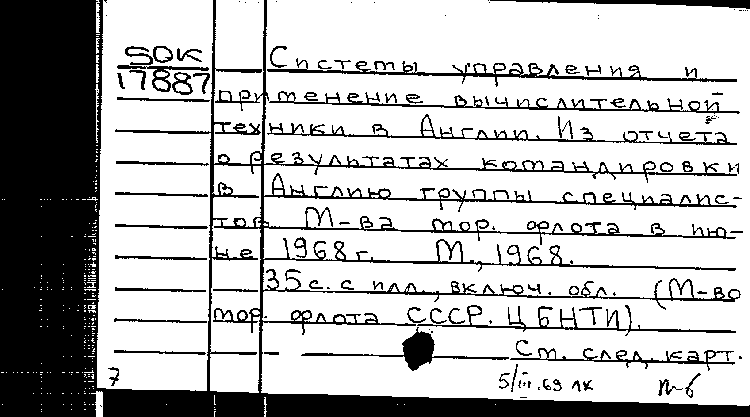 50К
17887
Системы управления и
применение вычислительной
техники в Англии. Из отчета
о результатах командировки
в Англию группы специалис-
тов М-ва мор. флота в ию-
не 1968 г. М., 1968.
35 с. с илл., включ. обл. (М-во
мор. флота СССР. ЦБНТИ).
См. след. карт.
7 5/III.69 лк